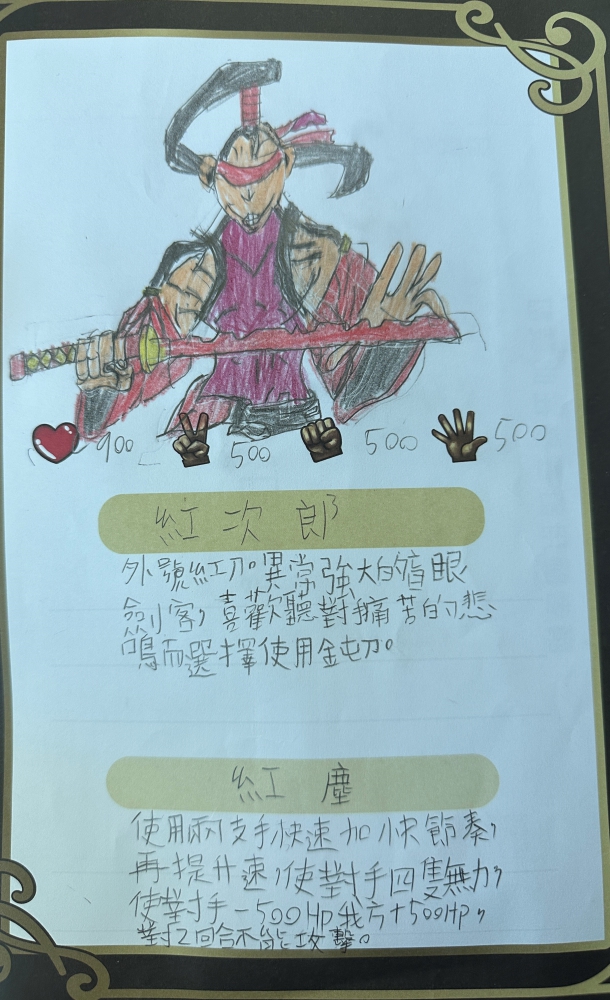 900 500 500 500
紅次郎
外號紅刀。異常強大的盲眼
劍客,喜歡聽對手痛苦的悲
鳴而選擇使用鈍刀。
紅塵
使用兩支手快速加快節奏,
再提升速,使對手四隻無力,
使對手-500HP我方+500HP,
對2回合不能攻擊。